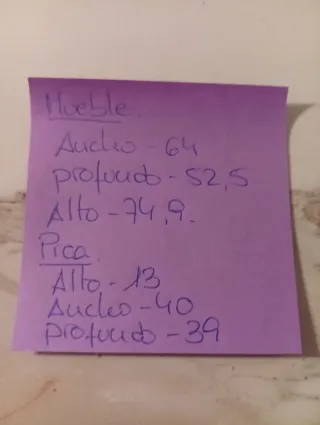 Mueble.
Ancho - 64
profundo - 52,5
Alto - 74,9.
Pica.
Alto - 13
Ancho - 40
profundo - 39